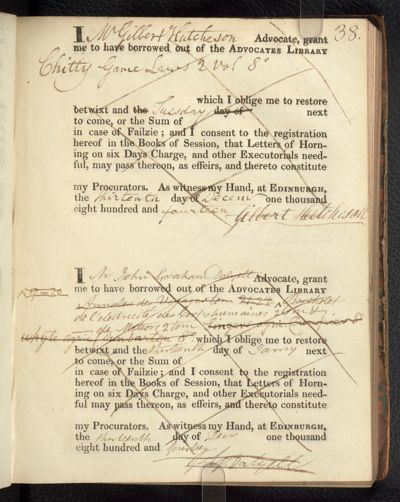 38.
I Mr Gilbert Hutcheson Advocate, grant
me to have borrowed out of the ADVOCATES LIBRARY
Chitty Game Laws 2 vol 8°
which I oblige me to restore
betwixt and the Tuesday day of next
to come, or the Sum of
in case of Failzie; and I consent to the registration
hereof in the Books of Session, that Letters of Horn-
ing on six Days Charge, and other Executorials need-
ful, may pass thereon, as effeirs, and thereto constitute
my Procurators. As witness my Hand, at EDINBURGH,
the thirteenth day of Decem one thousand
eight hundred and fourteen Gilbert Hutcheson
I Mr John Graham Dalyell Advocate, grant
me to have borrowed out of the ADVOCATES LIBRARY
de l'electricité du corps humaine 2 tom
2 tom
which I oblige me to restore
betwixt and the thirteenth day of Janry next
to come, or the Sum of
in case of Failzie; and I consent to the registration
hereof in the Books of Session, that Letters of Horn-
ing on six Days Charge, and other Executorials need-
ful may pass thereon, as effeirs, and thereto constitute
my Procurators. As witness my Hand, at EDINBURGH,
the thirteenth day of Decr one thousand
eight hundred and fourteen